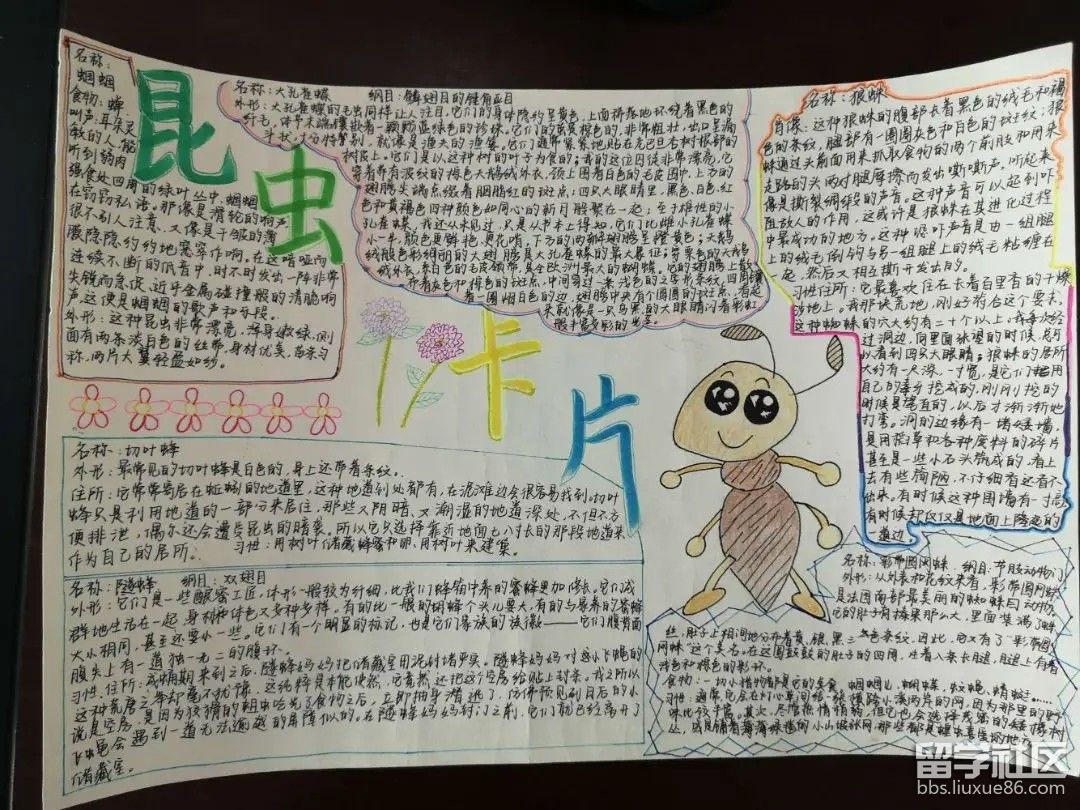 昆
虫
卡
片
名称：
蝈蝈
食物：蝉
叫声：耳朵灵
敏的人，能
听到弱肉
强食处四周的绿叶丛中，蝈蝈
在窃窃私语。那像是滑轮的响声
很不引人注意，又像是干皱的薄
膜隐隐约约地窸窣作响。在这喑哑而
连续不断的低音中，时不时发出一阵非常
尖锐而急促、近乎金属碰撞般的清脆响
声，这便是蝈蝈的歌声和
外形：这种昆虫非常漂亮，浑身嫩绿，侧
面有两条淡白色的丝带，身材优美，苗条匀
称，两片大翼轻盈如纱。
名称：大孔雀蝶 纲目：鳞翅目的
外形：大孔雀蝶的毛虫同样让人注目，它们的身体隐约呈黄色，上面稀疏地环绕着黑色的
纤毛，体节末端镶嵌着一颗颗蓝绿色的珍珠。它们的茧是褐色的，非常粗壮，出口呈漏
斗状，十分特别，就像是渔夫的渔篓。它们通常紧紧地贴在老巴旦杏树根部的
树皮上。它们是以这种树的叶子为食的；
翅膀尖端点缀着胭脂红的斑点；四只大眼睛里，黑色、白色、红
色和黄褐色四种颜色如同心的新月般聚在一起；至于雌性的小
孔雀蝶，我还从未见过，只是从书本上得知，它们比雌小孔雀蝶
小一半，颜色更鲜艳、更花哨，下方的两瓣翅膀呈橙黄色。大鹅
绒般色彩绚丽的大翅膀是大孔雀蝶的最大看征；
绒外衣，系白色的毛皮领带，是全欧洲最大的蝴蝶。它的翅膀上
着一圈烟白色的边，翅膀中央有个圆圆的斑点，看起
来就像是一只乌黑的大眼睛闪着彩虹
般千变万彩的光芒。
名称：狼蛛
肖像：这种狼蛛的腹部长着黑色的绒毛和褐
色的条纹，腿部有一圈圈灰色和白色的斑纹，狼
蛛通过头前面用来抓取食物的两个前肢和用来
走路的头两对腿摩擦而发出嘶嘶声，听起来
像是撕裂绸缎的声音。这种声音可以起到吓
阻敌人的作用，这或许是狼蛛在其进化过程
中最成功的地方。这种喉吓声音是由一组腿
上的绒毛倒钩与另一组腿上的绒毛粘缠在
一起，然后又相互撕开发出的。
习性住所：它最喜欢住在长着百里香的干燥
沙地上。我那块荒地，刚好符合这个要求，
这种蜘蛛的穴大约有二十个以上。我每次经
过洞边，向里面张望的时候，总可
以看到四只大眼睛。狼蛛的居所
大约有一尺深，一寸宽，是它们用
自己的毒牙挖成的，刚刚挖的
时候是笔直的，以后才渐渐地
打弯。洞的边缘有一堵矮墙，
是用稻草和各种废料的碎片
甚至是一些小石头筑成的，看上
去有些简陋，不仔细看还看不
出来，有时候这种围墙有一寸高，
有时候却仅仅是地面上隆起的
一道边。
名称：切叶蜂
外形：最常见的切叶蜂是白色的，身上还带着条纹。
住所：它常常寄居在蚯蚓的地道里，这种地道到处都有，在泥滩边会很容易找到。切叶
蜂只是利用地道的一部分来居住，那些又阴暗、又潮湿的地道深处，不但不方
便排泄，偶尔还会遭受昆虫的暗袭。所以它只选择靠近地面七八寸长的那段地道来
作为自己的居所。 习性：用树叶储藏蜂蜜和卵，用树叶来建巢。
名称：隧蜂 纲目：双翅目
外形：它们是一些酿蜜工匠，体形一般较为纤细，比我们蜂箱中养的蜜蜂更加修长。它们成
群地生活在一起，身材和体色又多种多样。有的比一般的胡蜂个头儿要大，有的与豢养的蜜蜂
大小相同，甚至还要小一些。它们有一个明显的标记，也是它们家族的族徽——它们腹背面
腹尖上有一道独一无二的腹环。
习性、住所：成蛹期来到之后，隧蜂妈妈把储藏室用泥封堵严实。隧蜂妈妈对
说是空房，是因为狡猾的蛆虫吃完了食物之后，立即抽身潜逃了，仿佛预见到日后的小
飞虫竟会遇到一道无法逾越的屏障似的，在隧蜂妈妈封门之前，它们就已经离开了
储藏室。
名称：彩带圆网蛛 纲目：节肢动物门
外形：从外表和花纹来看，彩带圆网蛛
是法国南部最美丽的蜘蛛目动物。
它的肚子有榛果那么大，里面装满了蛛
丝，肚子上相间地分布着黄、银、黑三色条纹，因此，它又有了“彩带圆
网蛛”这个美名。在这圆鼓鼓的肚子的四周，生着八条长腿，腿上有着
浅色和褐色的彩环。
食物：一切小猎物都是它的美食，蝈蝈儿、蝴蝶、蚊蝇、蜻蜓……
习性：通常它会在灯心草间给一张横跨小溪两岸的网，因为那里的野
味比较丰富。其次，尽管热情稍减，但它也会选择茂密的绿橡树
丛，
留学社区
bbs.liuxue86.com